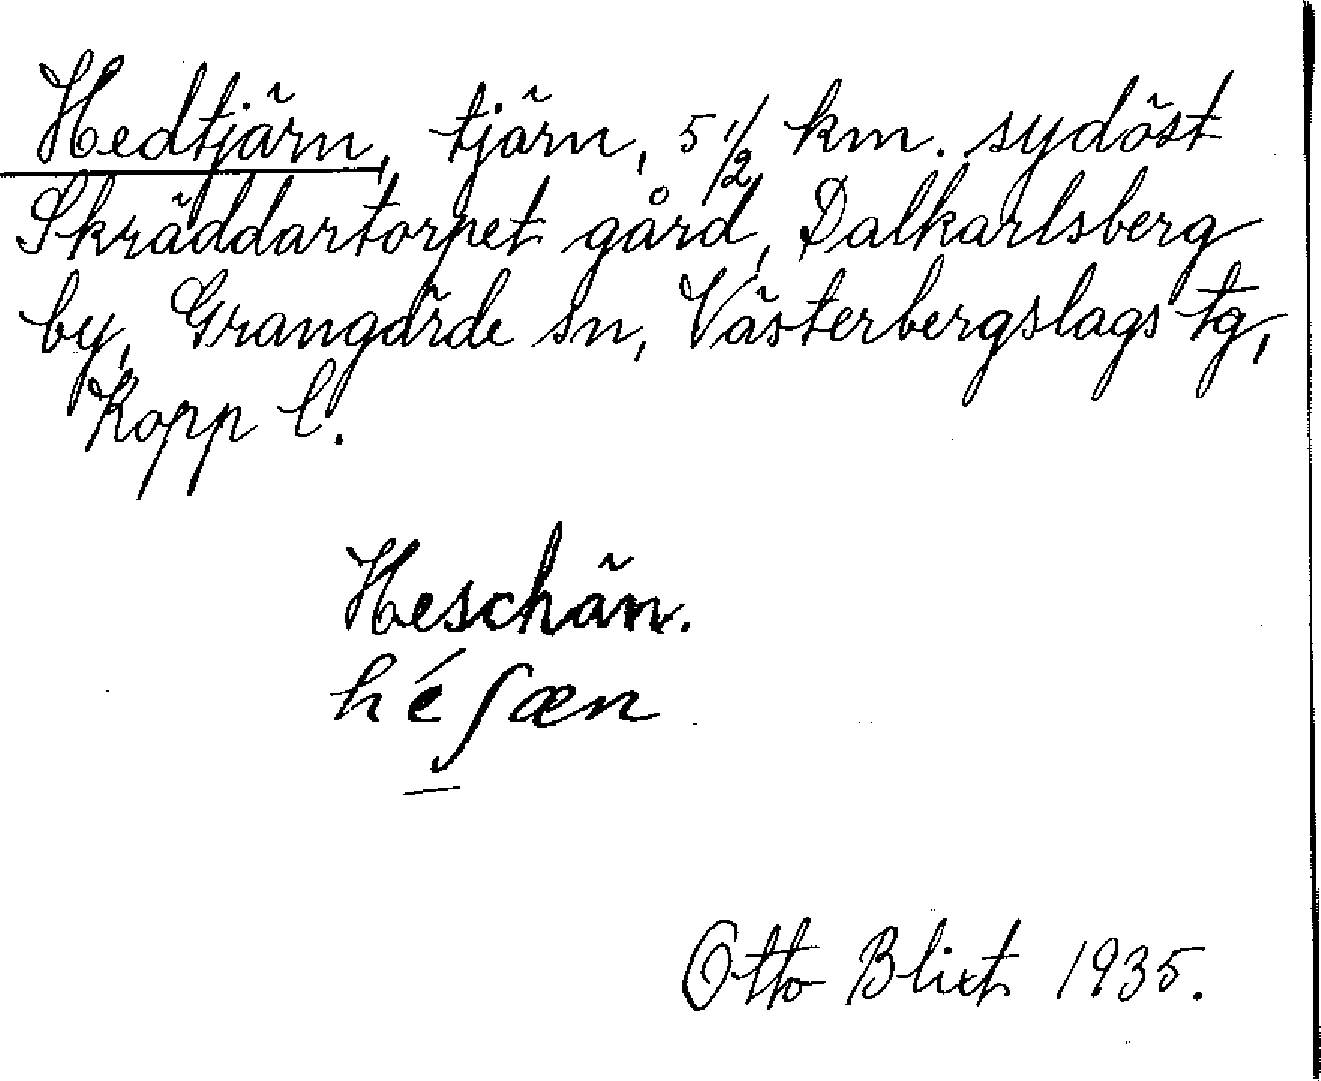 Hedtjärn, tjärn, 5 1/2 km. sydöst
Skräddartorpet gård, Dalkarlsberg
by, Grangärde sn, Västerbergslags tg,
Kopp l.
Heschän.
héʃæn
Otto Blixt 1935.